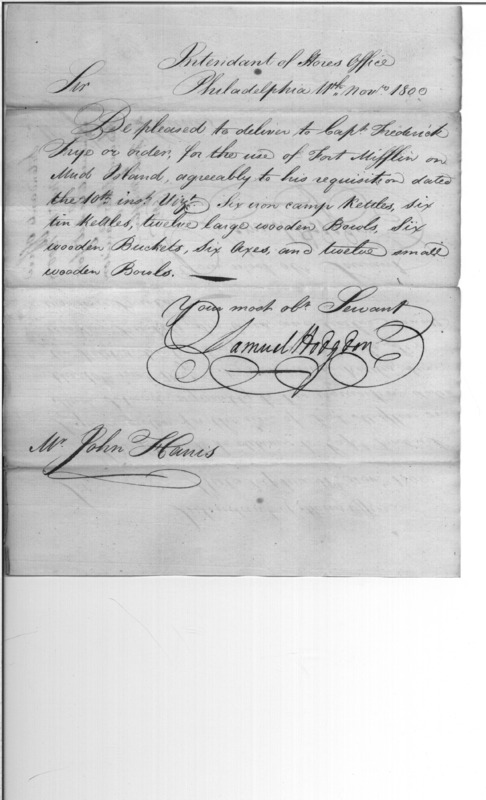 Intendant of Stores Office
Sir Philadelphia 11th. Nov.o 1800
Be pleased to deliver to Capt. Frederick
Frye or order, for the use of Fort Mifflin on
Mud Island, agreeably to his requisition dated
the 10th. inst. Vizt. Six iron camp Kettles, six
tin Kettles, twelve large wooden Bowls, Six
wooden Buckets, Six Axes, and twelve small
wooden Bowls.
Your most obt. Servant
Samuel Hodgdon
Mr. John Harris